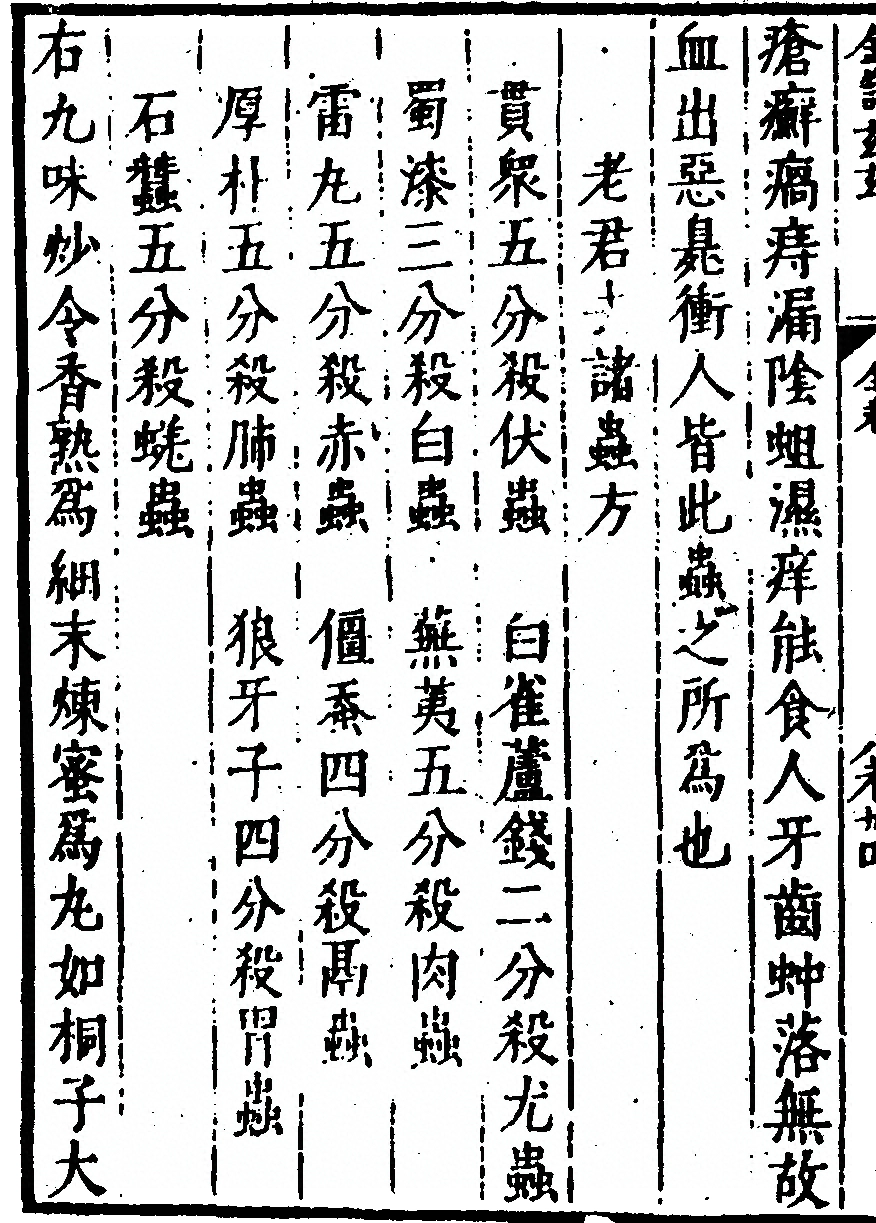 瘡癬瘑痔漏陰䖡濕痒能食人牙齒蚛落無故
血出惡臰衝人皆此蟲之所為也
老君去諸蟲方
貫衆五分殺伏蟲 白雀蘆錢二分殺尤蟲
蜀漆三分殺白蟲 蕪荑五分殺肉蟲
雷丸五分殺赤蟲 僵蚕四分殺鬲蟲
厚朴五分殺肺蟲 狼牙子四分殺胃蟲
石蠶五分殺蜣蟲
右九味炒令香熟爲細末煉蜜爲丸如桐子大